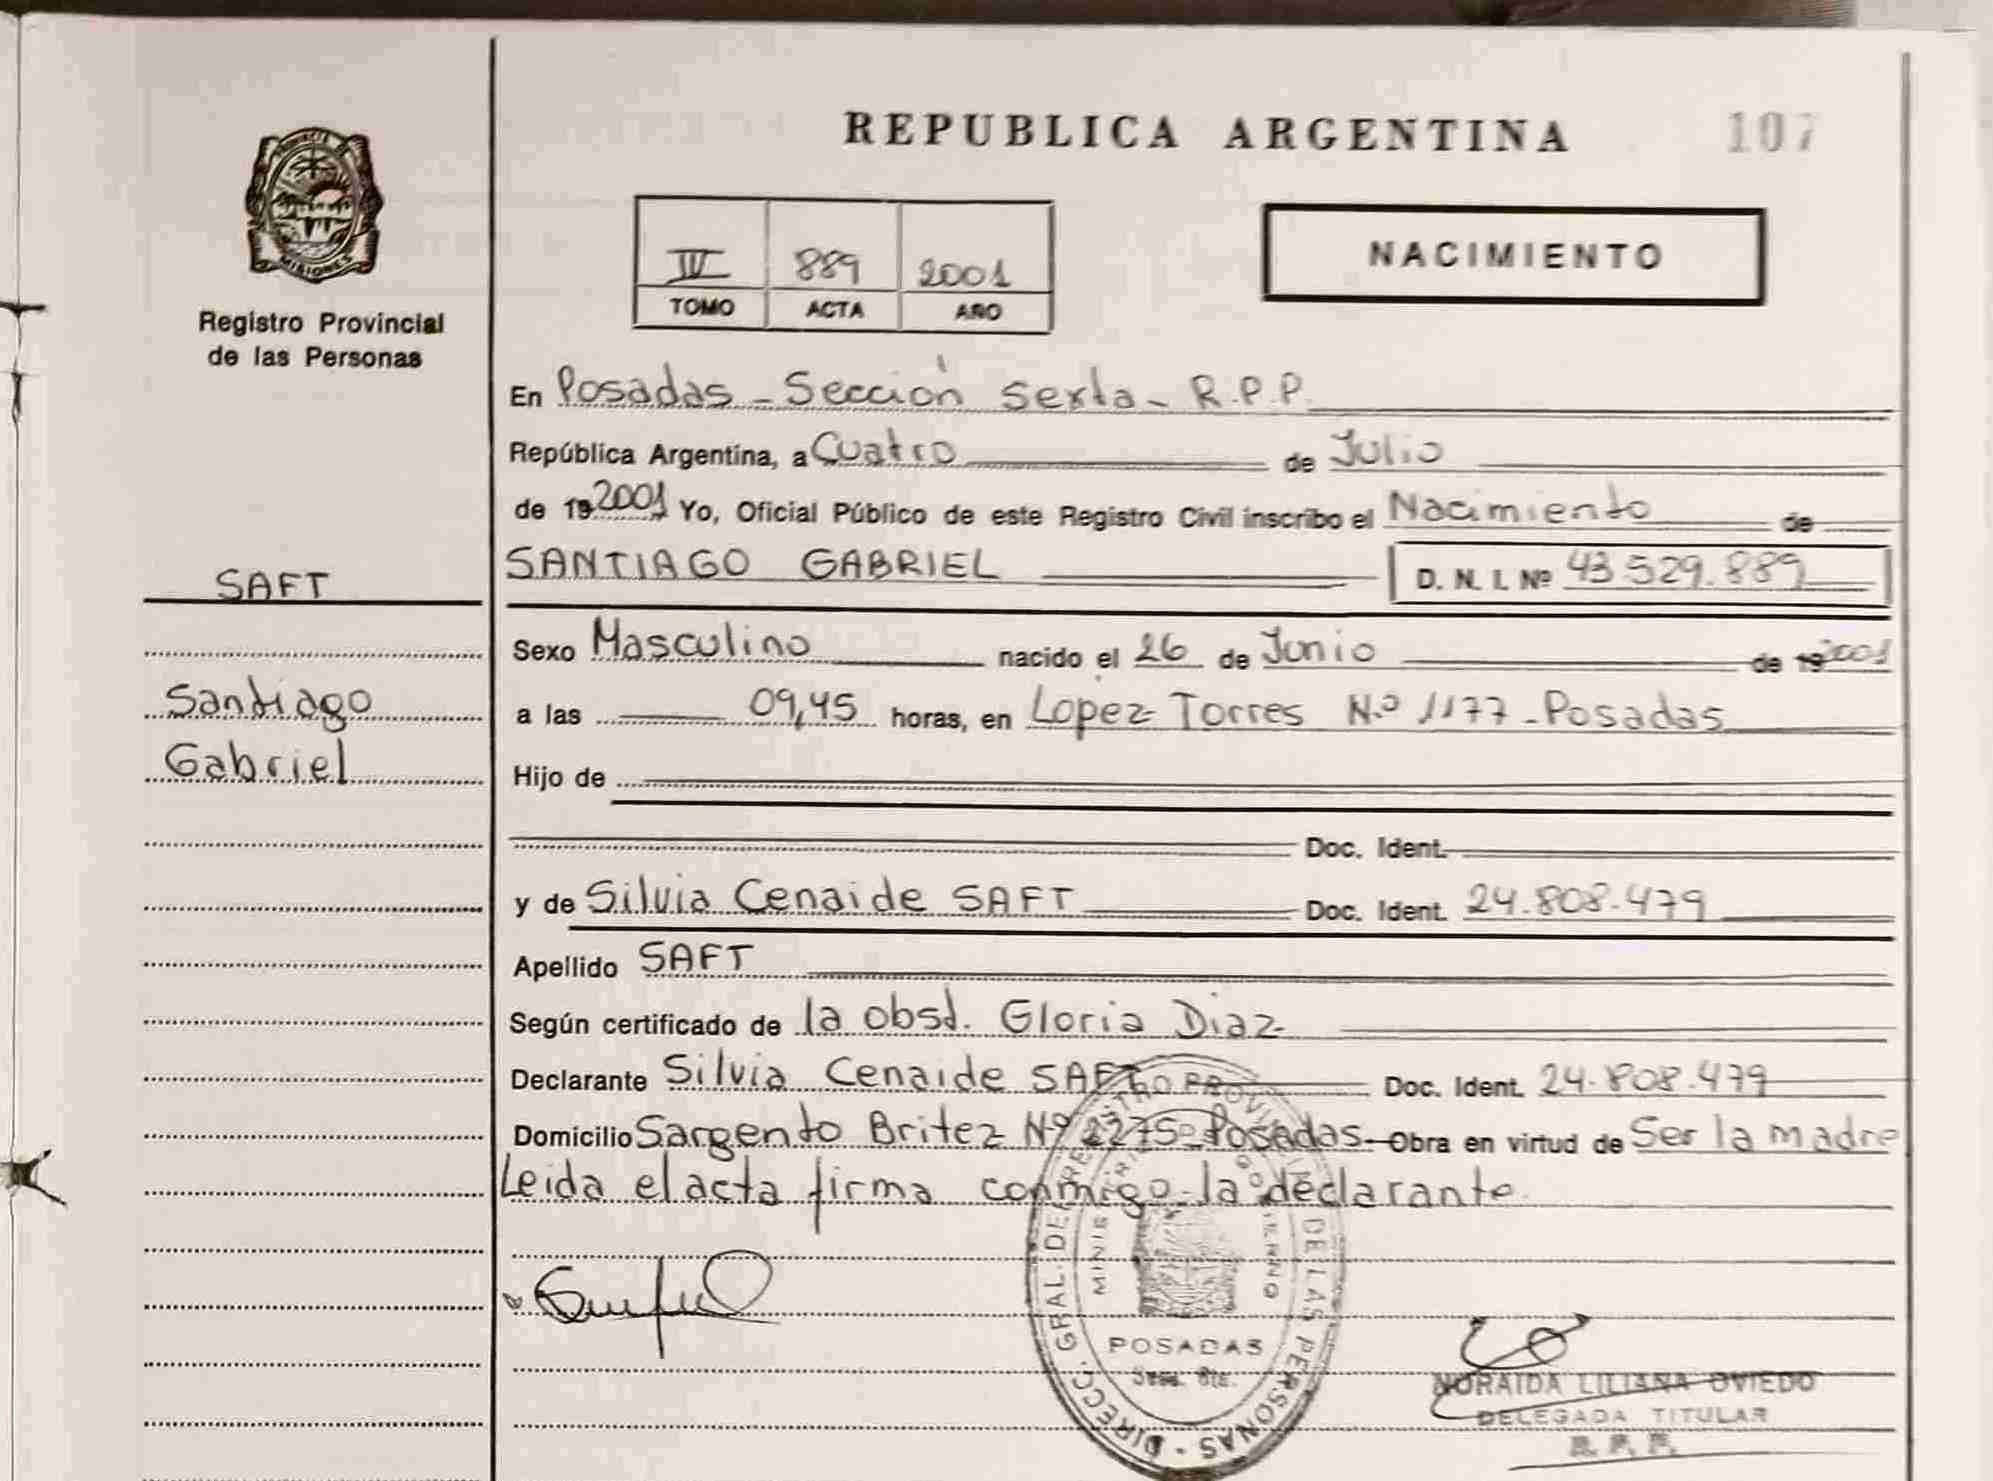 REPUBLICA ARGENTINA
107
PROVINCIA DE
MISIONES
Registro Provincial
de las Personas
IV 889 2001
TOMO ACTA AÑO
NACIMIENTO
En Posadas - Sección Sexta - R.P.P.
República Argentina, a Cuatro de Julio
de 19 2001 Yo, Oficial Público de este Registro Civil inscribo el Nacimiento de
SANTIAGO GABRIEL D. N. I. Nº 43.529.889
SAFT
Sexo Masculino nacido el 26 de Junio de 19 2001
Santiago
a las 09,45 horas, en Lopez Torres N.º 1177 - Posadas
Gabriel
Hijo de
Doc. Ident.
y de Silvia Cenaide SAFT Doc. Ident. 24.808.479
Apellido SAFT
Según certificado de la obst. Gloria Diaz
Declarante Silvia Cenaide SAFT Doc. Ident. 24.808.479
Domicilio Sargento Britez Nº 2275 - Posadas - Obra en virtud de Ser la madre
Leida el acta firma conmigo la declarante.
DIRECC. GRAL. DEL REGISTRO PROVINCIAL DE LAS PERSONAS
MINISTERIO GOBIERNO
POSADAS
Secc. 6ta.
NORAIDA LILIANA OVIEDO
DELEGADA TITULAR
R. P. P.